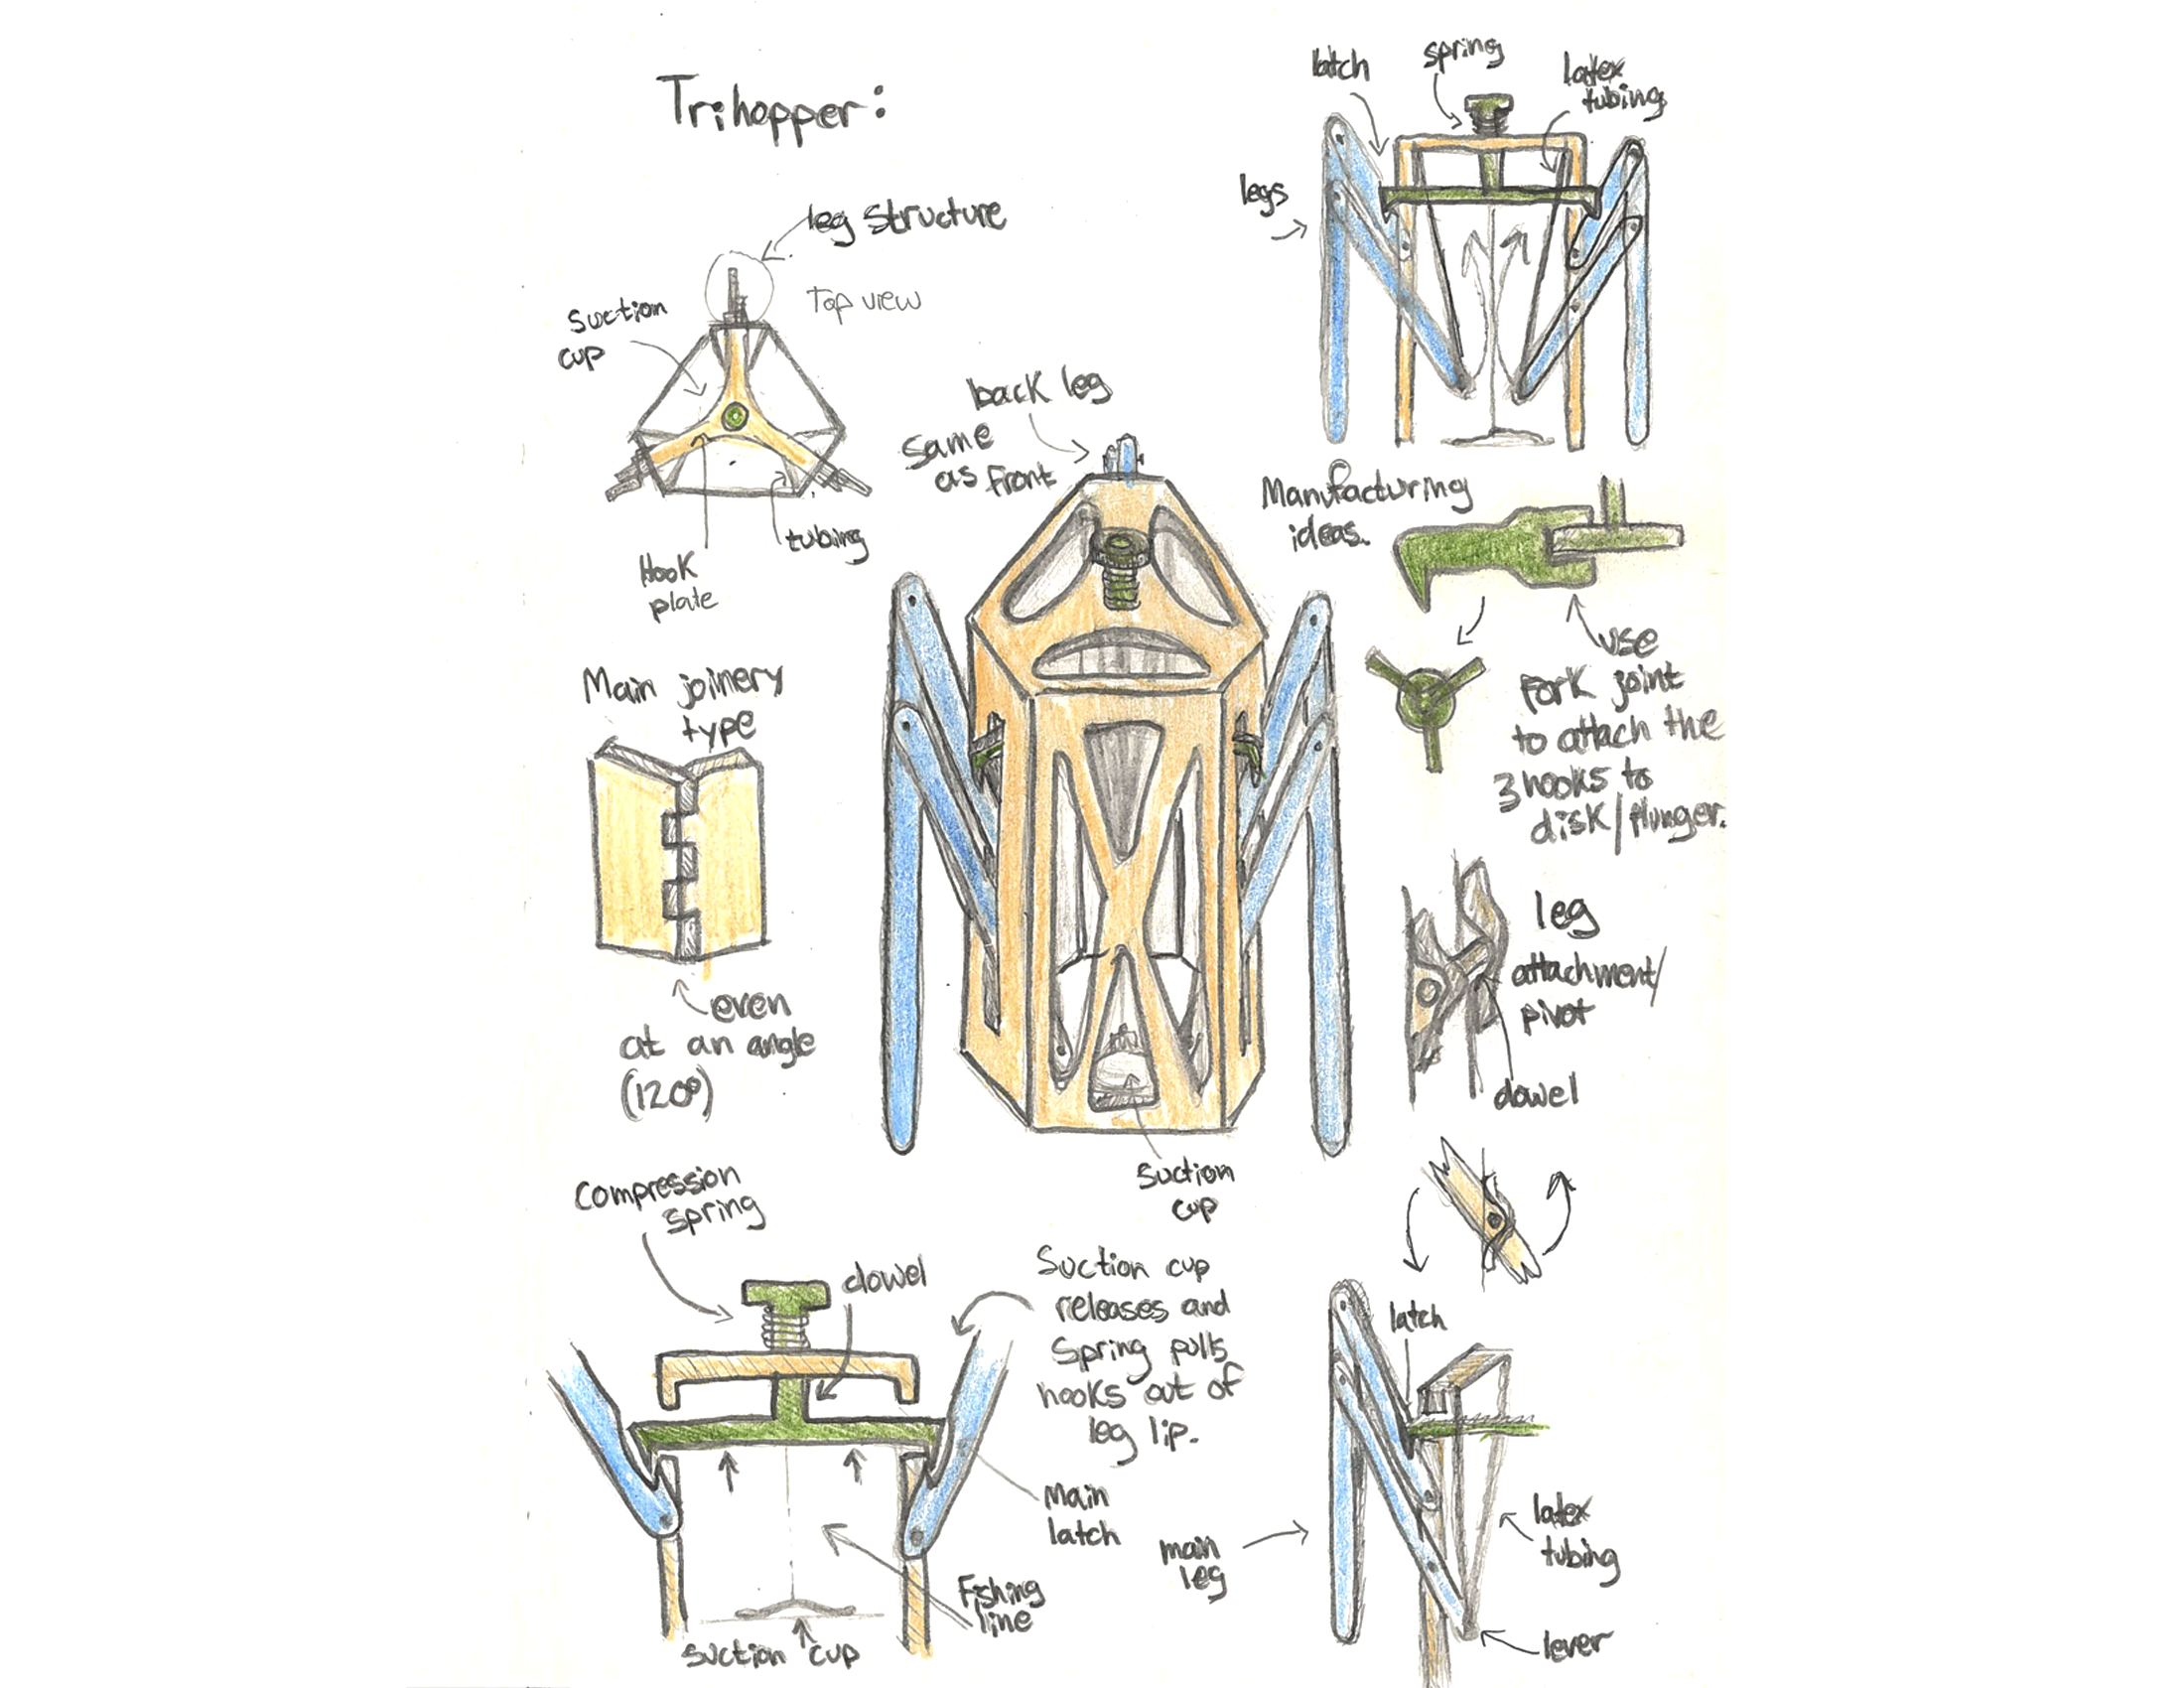 Trihopper:
leg structure
Top view
suction
cup
Hook
plate
tubing
latch
spring
latex
tubing
legs
back leg
same
as front
Manufacturing
ideas.
use
fork joint
to attach the
3 hooks to
disk/plunger.
Main joinery
type
even
at an angle
(120°)
leg
attachment/
pivot
dowel
suction
cup
Compression
spring
dowel
Suction cup
releases and
Spring pulls
hooks out of
leg lip.
Main
latch
Fishing
line
suction cup
latch
main
leg
latex
tubing
lever